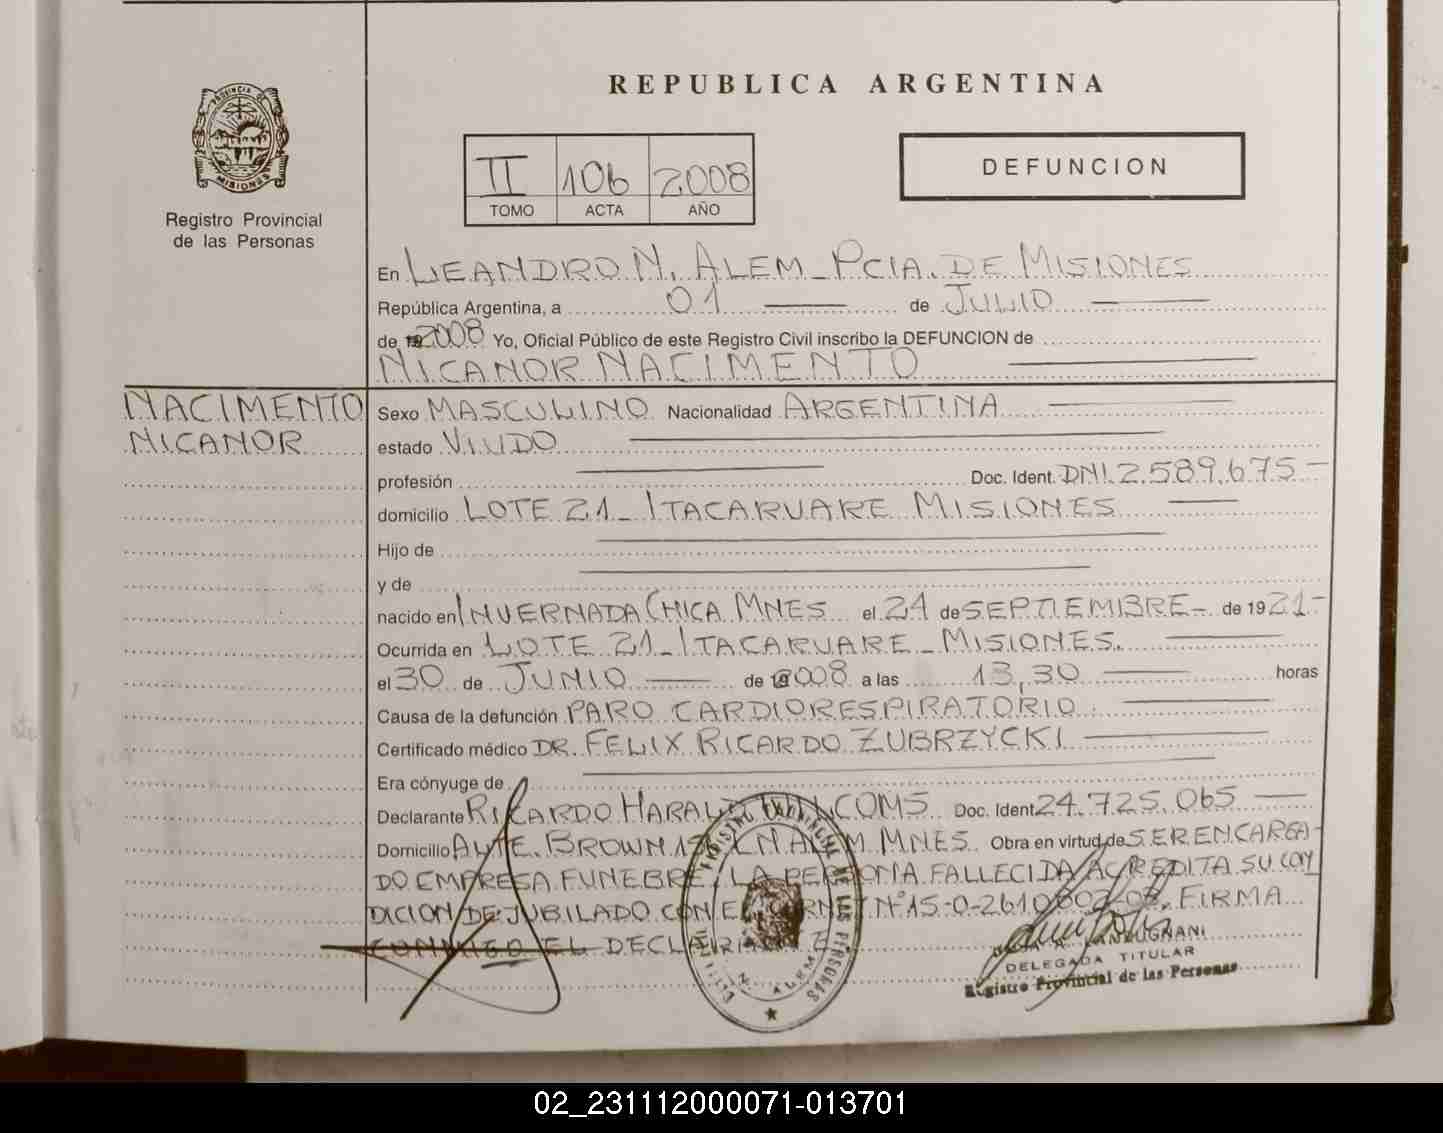 REPUBLICA ARGENTINA
PROVINCIA DE
MISIONES
Registro Provincial
de las Personas
II 106 2008
TOMO ACTA AÑO
DEFUNCION
En LEANDRO N. ALEM - PCIA. DE MISIONES
República Argentina, a 01 de JULIO
de 2008 Yo, Oficial Público de este Registro Civil inscribo la DEFUNCION de
NICANOR NACIMENTO
NACIMENTO
NICANOR
Sexo MASCULINO Nacionalidad ARGENTINA
estado VIUDO
profesión Doc. Ident. DNI. 2.589.675.-
domicilio LOTE 21 - ITACARUARE MISIONES
Hijo de
y de
nacido en INVERNADA CHICA MNES el 24 de SEPTIEMBRE - de 1921.-
Ocurrida en LOTE 21 - ITACARUARE - MISIONES.
el 30 de JUNIO de 2008 a las 13,30 horas
Causa de la defunción PARO CARDIORESPIRATORIO.
Certificado médico DR. FELIX RICARDO ZUBRZYCKI
Era cónyuge de
Declarante RICARDO Doc. Ident 24.725.065
Domicilio AVTE. BROWN MNES. Obra en virtud de SER ENCARGA-
DO EMPRESA FUNEBRE. LA PERSONA FALLECIDA ACREDITA SU CON
DICION DE JUBILADO CON EL CARNET N° FIRMA
CONMIGO EL
DELEGADA TITULAR
Registro Provincial de las Personas
REGISTRO PROVINCIAL DE LAS PERSONAS
N. ALEM
02_231112000071-013701